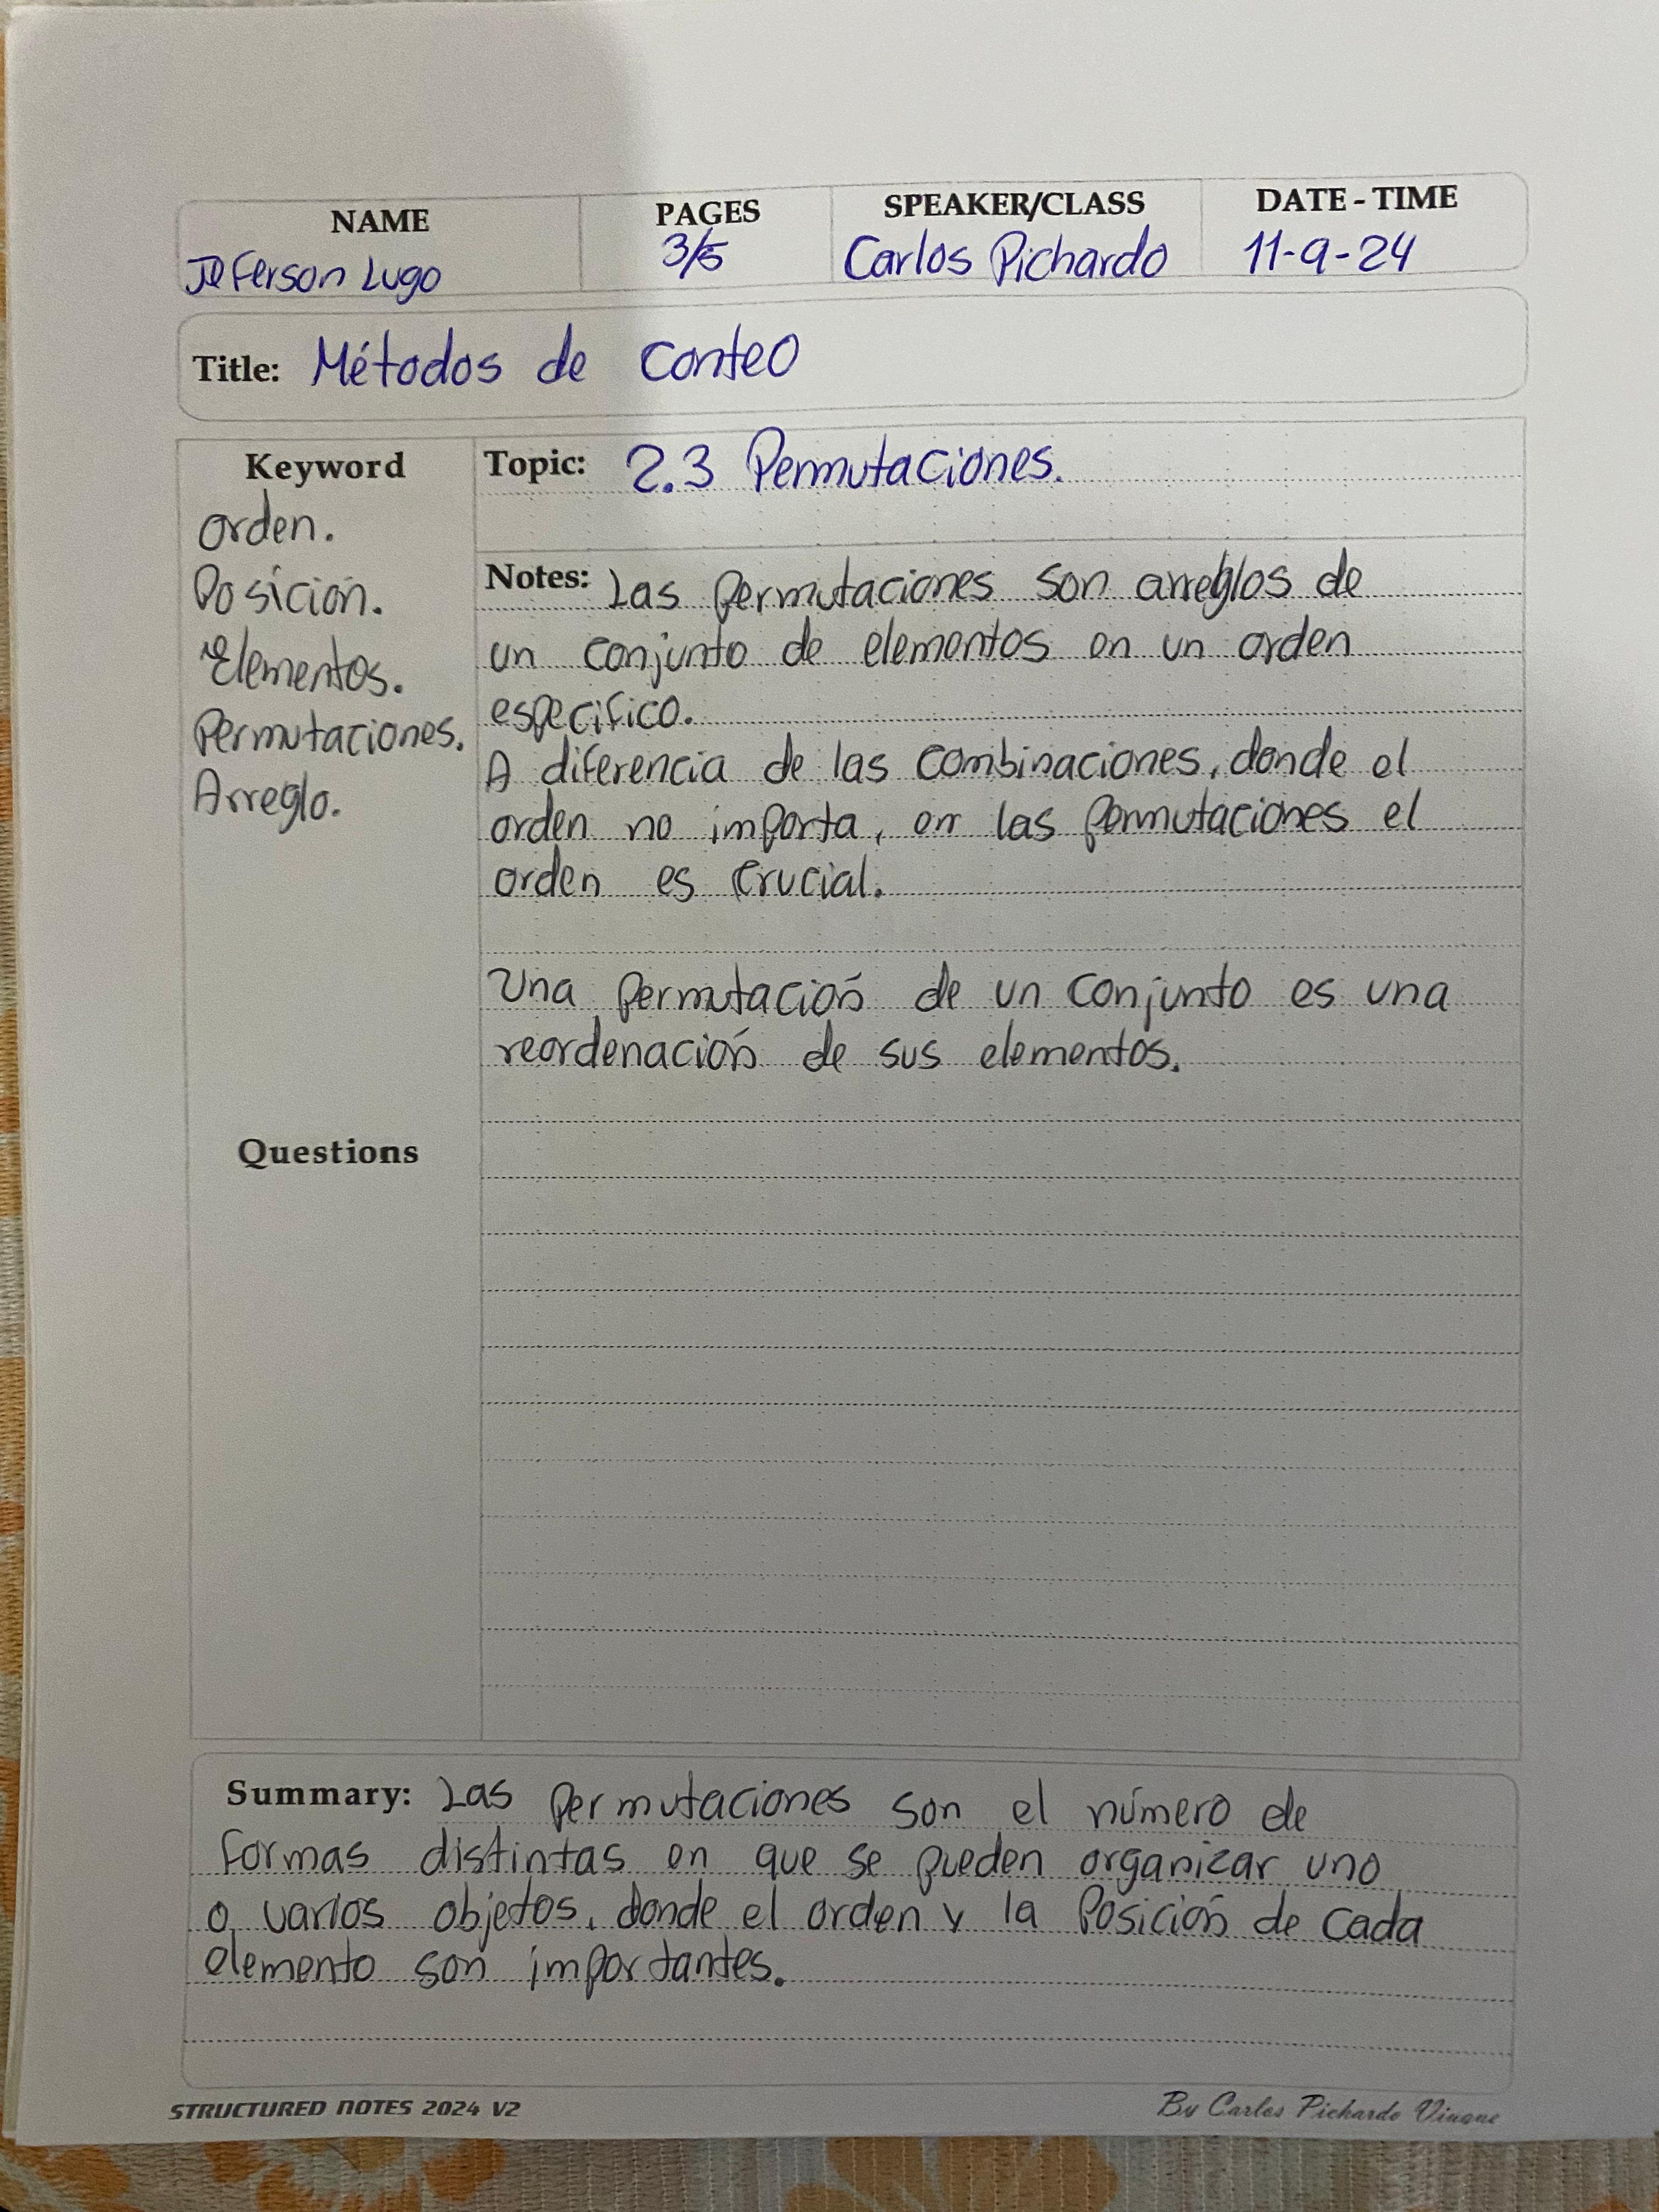 NAME
Jeferson Lugo
PAGES
3/5
SPEAKER/CLASS
Carlos Pichardo
DATE - TIME
11-9-24
Title: Métodos de conteo
Keyword
orden.
Posición.
Elementos.
Permutaciones.
Arreglo.
Questions
Topic: 2.3 Permutaciones.
Notes: Las permutaciones son arreglos de
un conjunto de elementos en un orden
especifico.
A diferencia de las combinaciones, donde el
orden no importa, en las permutaciones el
orden es crucial.
Una permutación de un conjunto es una
reordenación de sus elementos.
Summary: Las permutaciones son el número de
formas distintas en que se pueden organizar uno
o varios objetos, donde el orden y la posición de cada
elemento son importantes.
STRUCTURED NOTES 2024 V2
By Carlos Pichardo Viuque